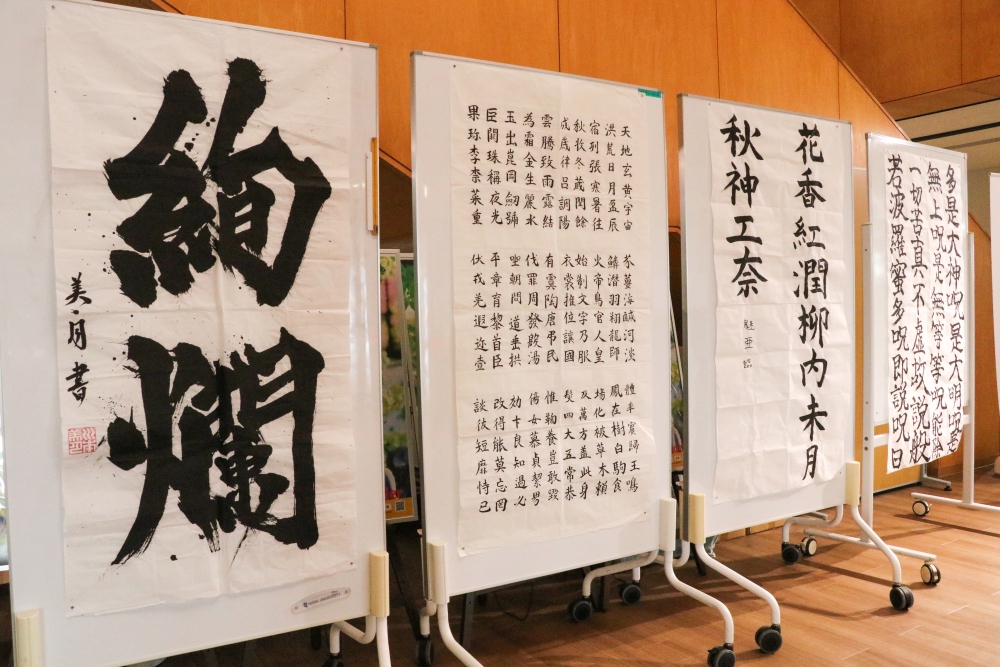 絢爛
美・月書
天地玄黄宇宙
洪荒日月盈辰
宿列張寒暑往
秋收冬蔵閏餘
成歳律呂調陽
雲騰致雨露結
為霜金生麗水
玉出崑岡劒號
巨闕珠稱夜光
果珎李柰菜重
芥薑海鹹河淡
鱗潜羽翔龍師
火帝鳥官人皇
始制文字乃服
衣裳推位讓國
有虞陶唐弔民
伐罪周發殷湯
坐朝問道垂拱
平章育黎首臣
伏戎羌遐迩壹
體率賓歸王鳴
鳳在樹白駒食
場化被草木賴
及萬方蓋此身
髪四大五常恭
惟鞠養豈敢毀
傷女慕貞絜男
效才良知過必
改得能莫忘罔
談彼短靡恃己
花香紅潤柳内未月
秋神工奈
多是大神呪是大明呪是
無上呪是無等等呪能除
一切苦真不虚故説般
若波羅蜜多呪即説呪曰